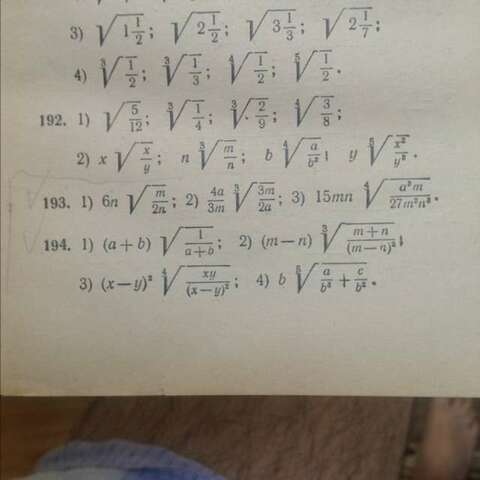 3) √1 1/2; √2 1/2; √3 1/3; √2 1/7;
4) ∛1/2; ∛1/3; ∜1/2; ⁵√1/2.
192. 1) √5/12; ∛1/4; ∛2/9; ∜3/8;
2) x √x/y; n ∛m/n; b ∜a/b²; y ⁵√x²/y³.
193. 1) 6n √m/2n; 2) 4a/3m ∛3m/2a; 3) 15mn ∜a³m/27m²n³.
194. 1) (a+b) √1/a+b; 2) (m—n) ∛m+n/(m—n)²;
3) (x—y)² ∜xy/(x—y)²; 4) b ⁵√a/b³ + c/b².